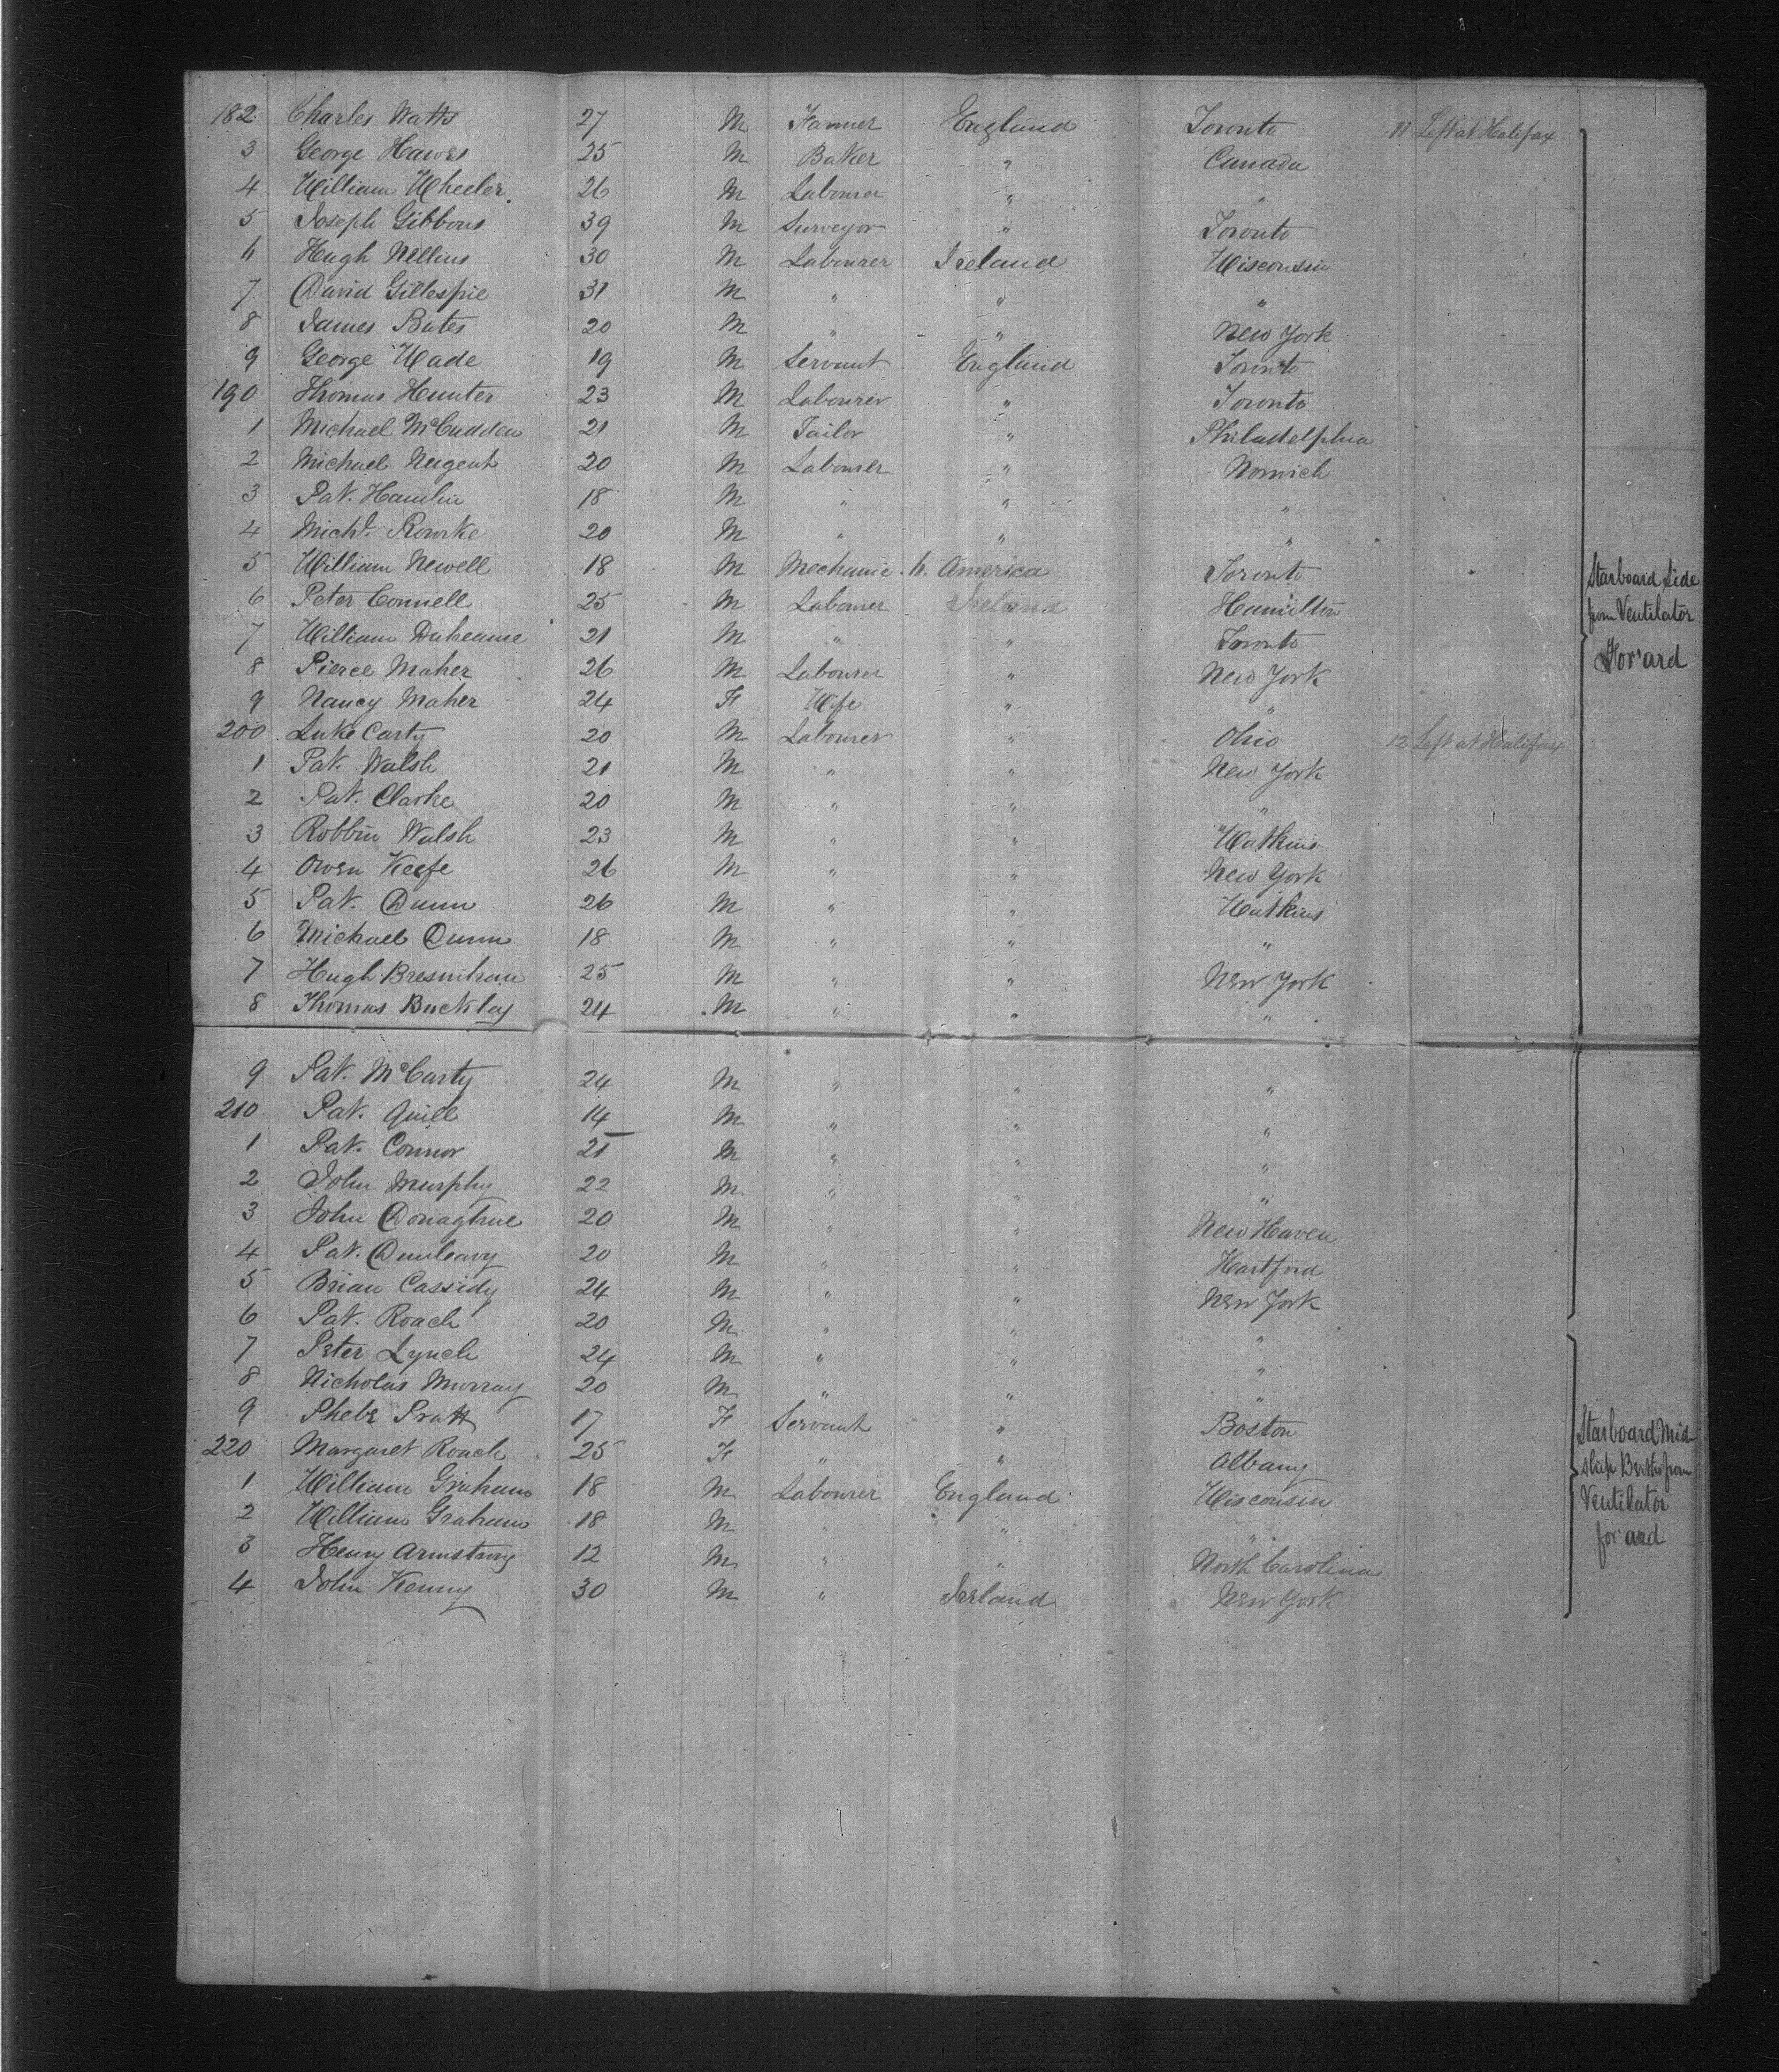 182 Charles Watts 27 M Farmer England Toronto 11 Left at Halifax
3 George Hawes 25 M Baker " Canada
4 William Wheeler 26 M Labourer " "
5 Joseph Gibbons 39 M Surveyor " Toronto
6 Hugh 30 M Labourer Ireland Wisconsin
7 David Gillespie 31 M " " "
8 James Bates 20 M " " New York
9 George Wade 19 M Servant England Toronto
190 Thomas Hunter 23 M Labourer " Toronto
1 Michael McCudden 21 M Tailor " Philadelphia
2 Michael Nugent 20 M Labourer " Norwich
3 Pat. Hamlin 18 M " " "
4 Michl. Rourke 20 M " " "
5 William Newell 18 M Mechanic N. America Toronto
6 Peter Connell 25 M Labourer Ireland Hamilton
7 William 21 M " " Toronto
8 Pierce Maher 26 M Labourer " New York
9 Nancy Maher 24 F Wife " "
200 Luke Carty 20 M Labourer " Ohio 12 Left at Halifax
1 Pat. Walsh 21 M " " New York
2 Pat. Clarke 20 M " " "
3 Robbin Walsh 23 M " " Watkins
4 Owen Keefe 26 M " " New York
5 Pat. Dunn 26 M " " Watkins
6 Michael Dunn 18 M " " "
7 Hugh Bresnihan 25 M " " New York
8 Thomas Buckley 24 M " " "
Starboard Side
from Ventilator
For'ard
9 Pat. McCarty 24 M " " "
210 Pat. Quill 14 M " " "
1 Pat. Connor 21 M " " "
2 John Murphy 22 M " " "
3 John Donaghue 20 M " " New Haven
4 Pat. Dunleavy 20 M " " Hartford
5 Brian Cassidy 24 M " " New York
6 Pat. Roach 20 M " " "
7 Peter Lynch 24 M " " "
8 Nicholas Murray 20 M " " "
9 Phebe Pratt 17 F Servant " Boston
220 Margaret Roach 25 F " " Albany
1 William Graham 18 M Labourer England Wisconsin
2 William Graham 18 M " " "
3 Henry Armstrong 12 M " " North Carolina
4 John Kenny 30 M " Ireland New York
Starboard Mid
ship Berths from
Ventilator
for'ard